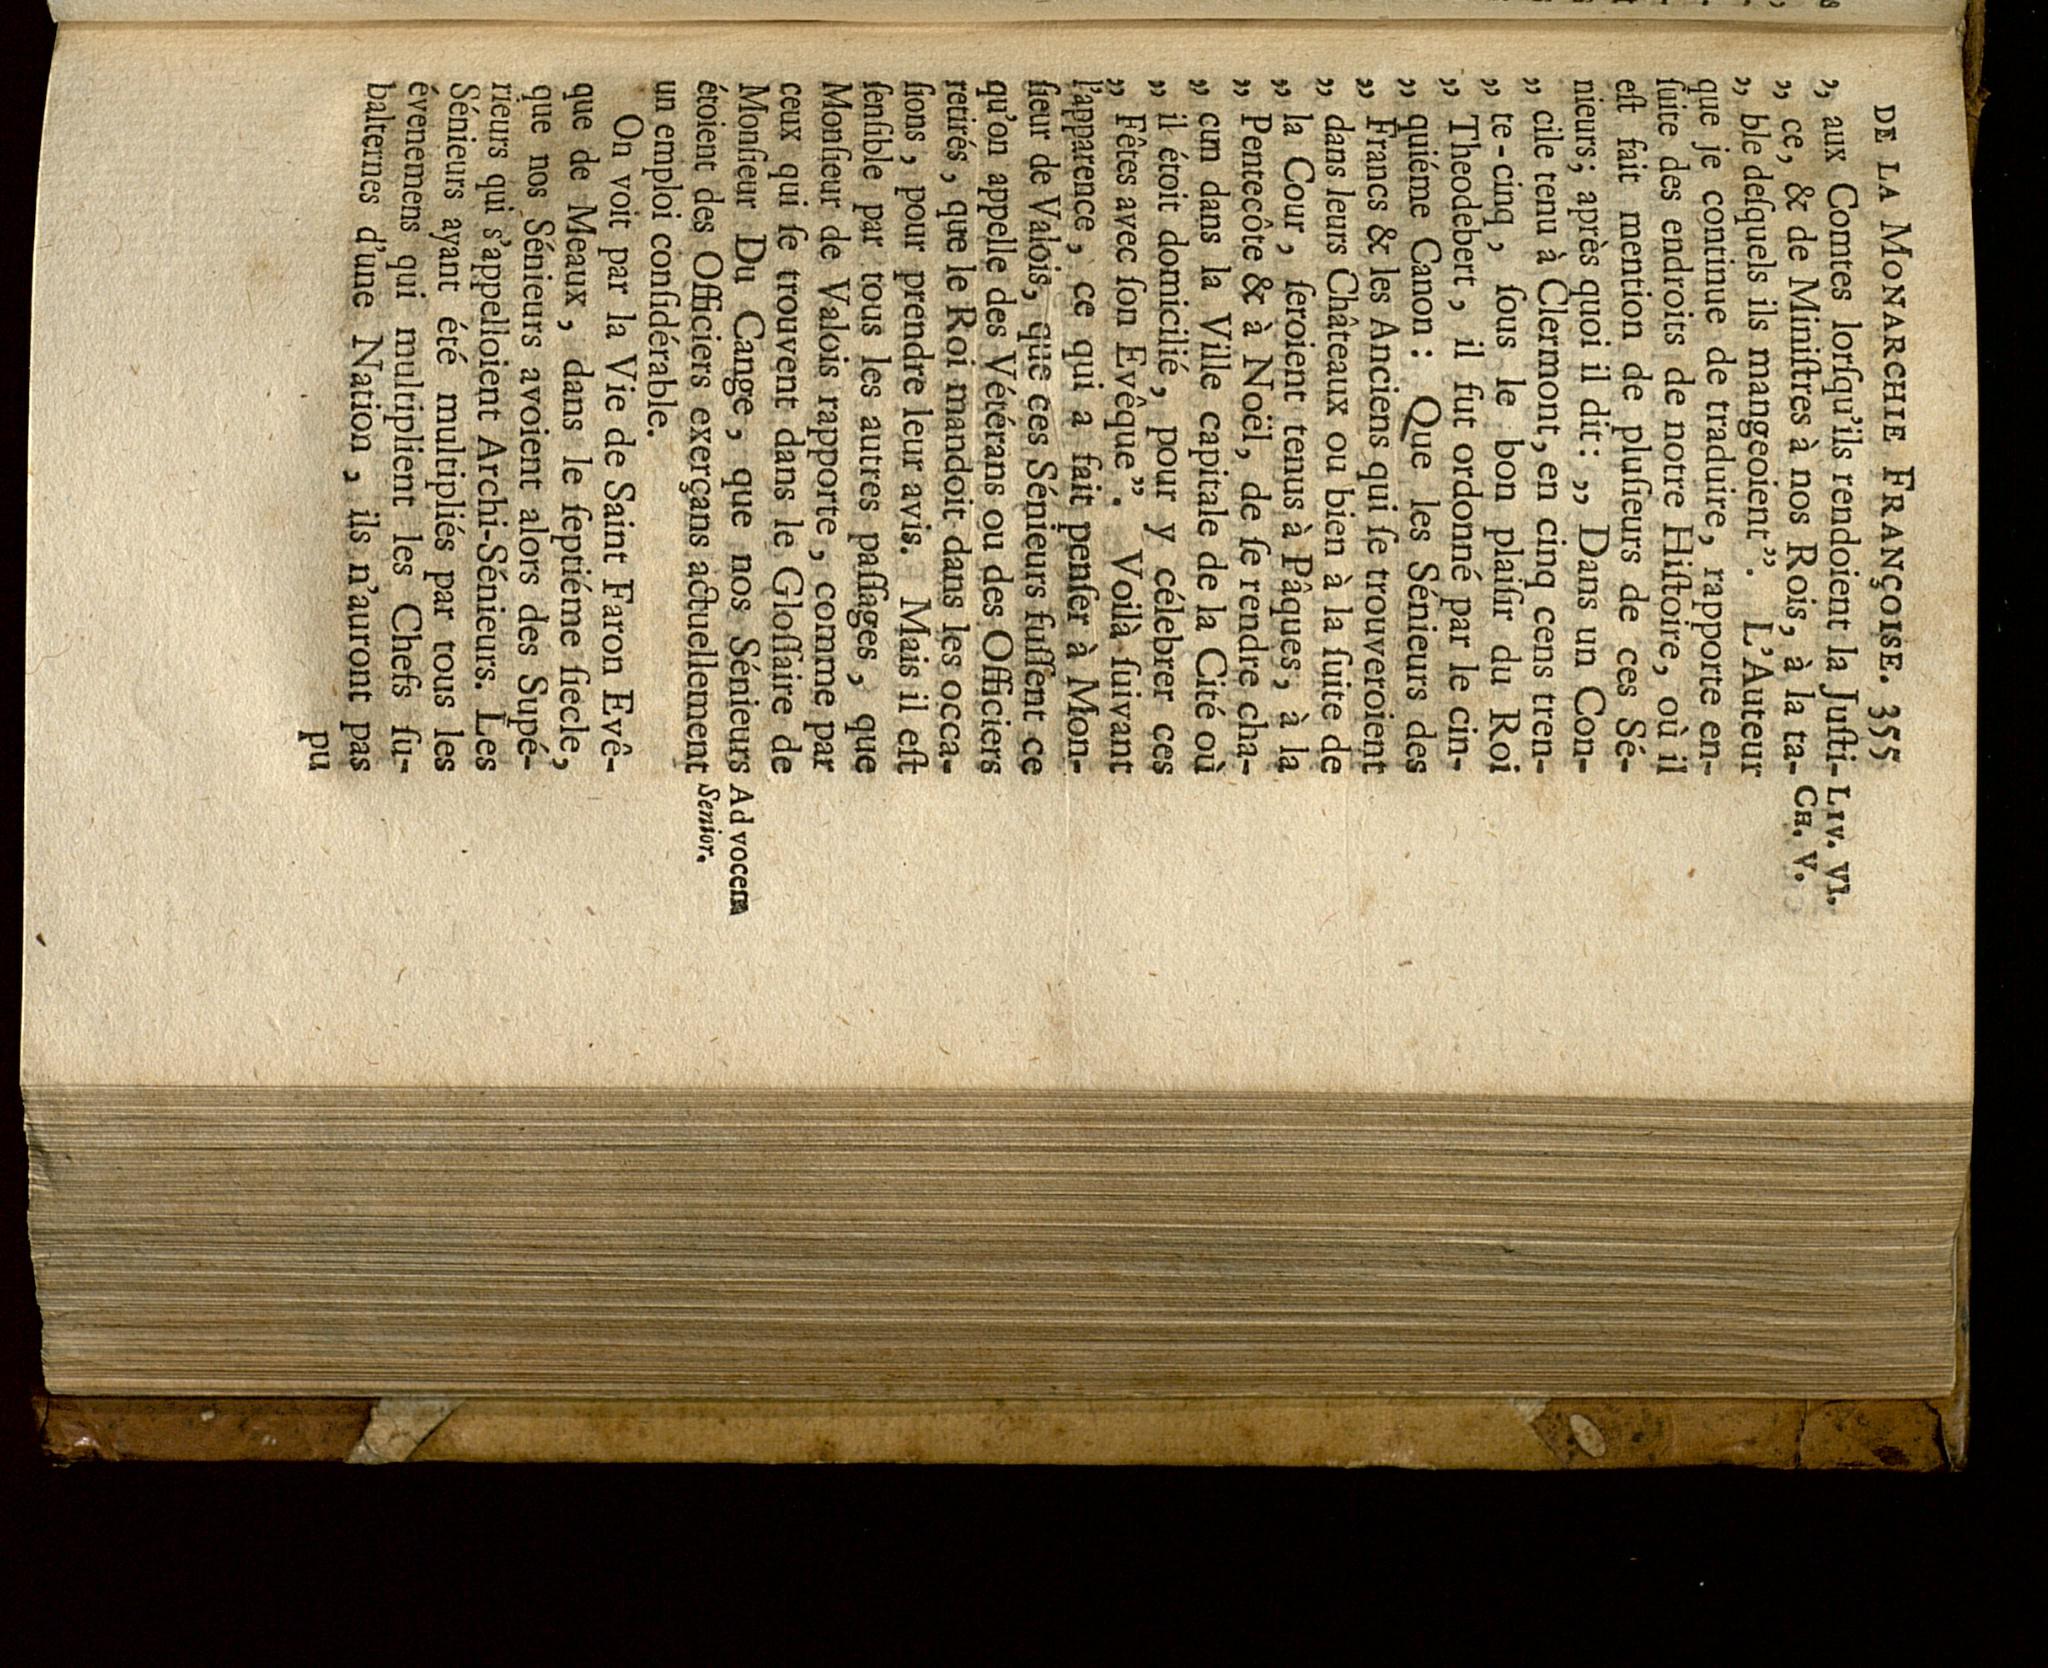 DE LA MONARCHIE FRANÇOISE. 355
„ aux Comtes lorſqu'ils rendoient la Juſti- LIV. VI.
„ ce, & de Miniſtres à nos Rois, à la ta- CH. V.
„ ble deſquels ils mangeoient”. L'Auteur
que je continue de traduire, rapporte en-
ſuite des endroits de notre Hiſtoire, où il
eſt fait mention de pluſieurs de ces Sé-
nieurs; après quoi il dit: „ Dans un Con-
„ cile tenu à Clermont, en cinq cens tren-
„ te-cinq, ſous le bon plaiſir du Roi
„ Theodebert, il fut ordonné par le cin-
„ quiéme Canon: Que les Sénieurs des
„ Francs & les Anciens qui ſe trouveroient
„ dans leurs Châteaux ou bien à la ſuite de
„ la Cour, ſeroient tenus à Pâques, à la
„ Pentecôte & à Noël, de ſe rendre cha-
„ cun dans la Ville capitale de la Cité où
„ il étoit domicilié, pour y célébrer ces
„ Fêtes avec ſon Evêque”. Voilà ſuivant
l'apparence, ce qui a fait penſer à Mon-
ſieur de Valois, que ces Sénieurs fuſſent ce
qu'on appelle des Vétérans ou des Officiers
retirés, que le Roi mandoit dans les occa-
ſions, pour prendre leur avis. Mais il eſt
ſenſible par tous les autres paſſages, que
Monſieur de Valois rapporte, comme par
ceux qui ſe trouvent dans le Gloſſaire de
Monſieur Du Cange, que nos Sénieurs Ad vocem
étoient des Officiers exerçans actuellement Senior.
un emploi conſidérable.
On voit par la Vie de Saint Faron Evê-
que de Meaux, dans le ſeptiéme ſiecle,
que nos Sénieurs avoient alors des Supé-
rieurs qui s'appelloient Archi-Sénieurs. Les
Sénieurs ayant été multipliés par tous les
évenemens qui multiplient les Chefs ſu-
balternes d'une Nation, ils n'auront pas
pu